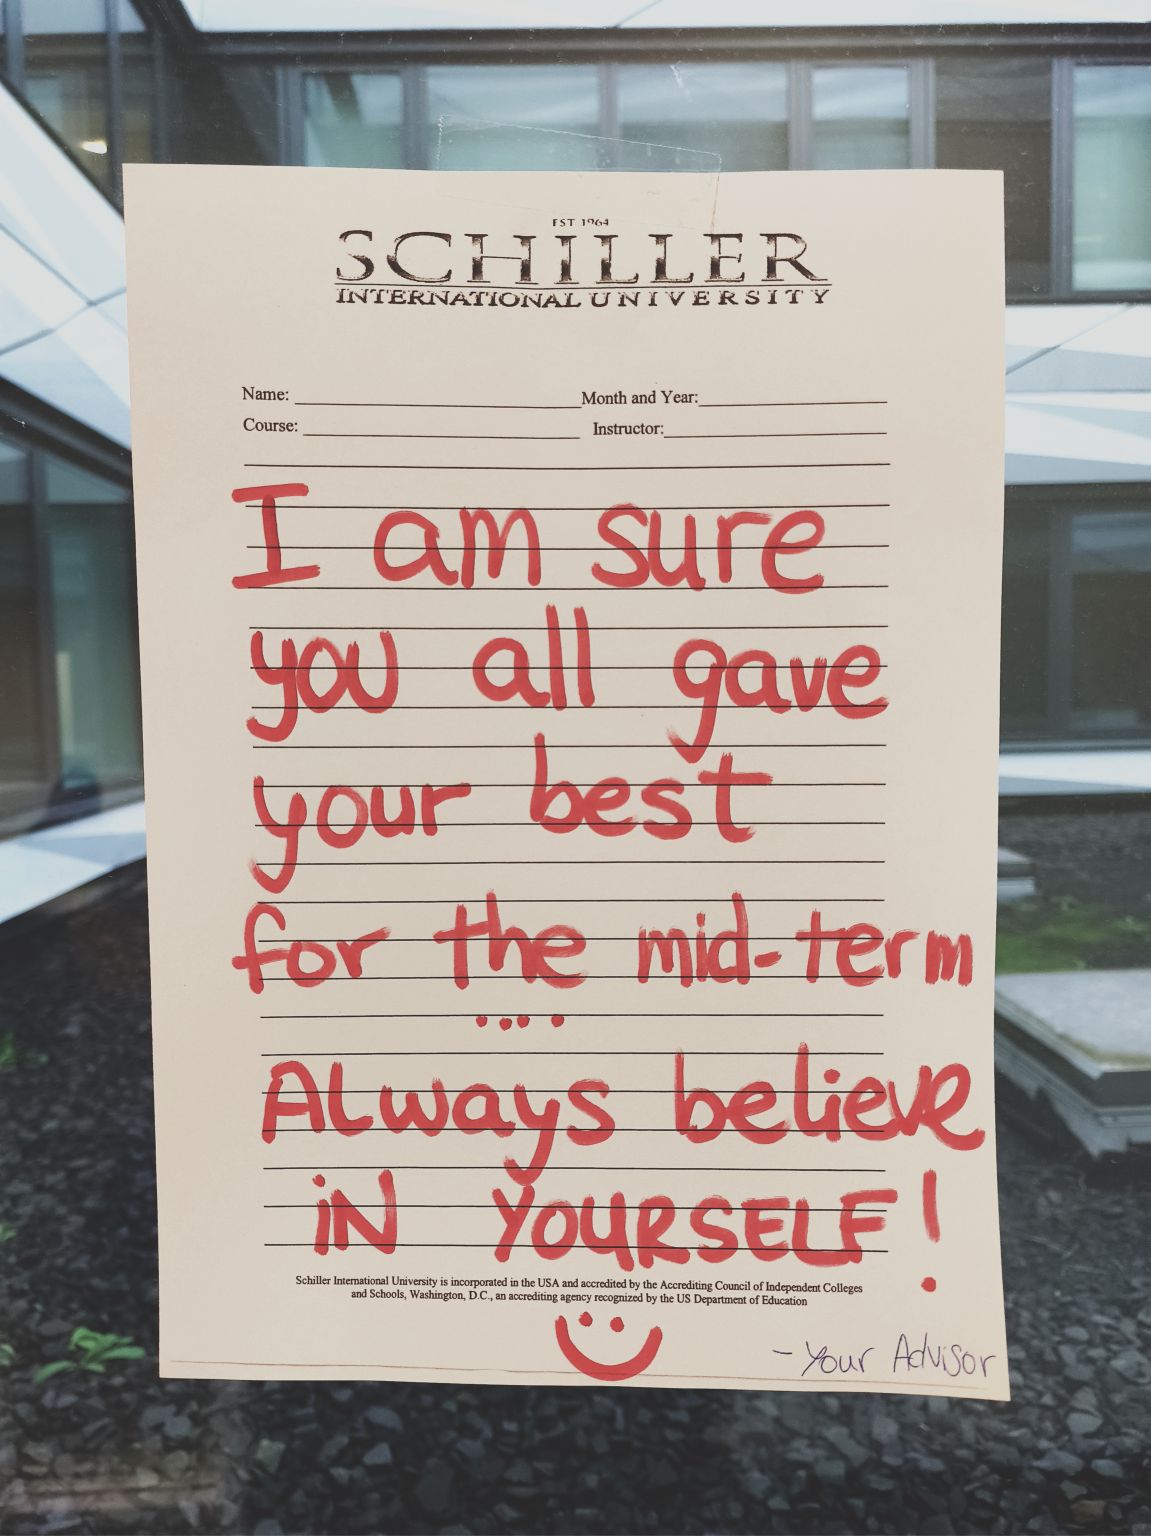 EST 1964
SCHILLER
INTERNATIONAL UNIVERSITY
Name: Month and Year:
Course: Instructor:
I am sure
you all gave
your best
for the mid-term
....
Always believe
iN YOURSELF!
Schiller International University is incorporated in the USA and accredited by the Accrediting Council of Independent Colleges
and Schools, Washington, D.C., an accrediting agency recognized by the US Department of Education
- Your Advisor